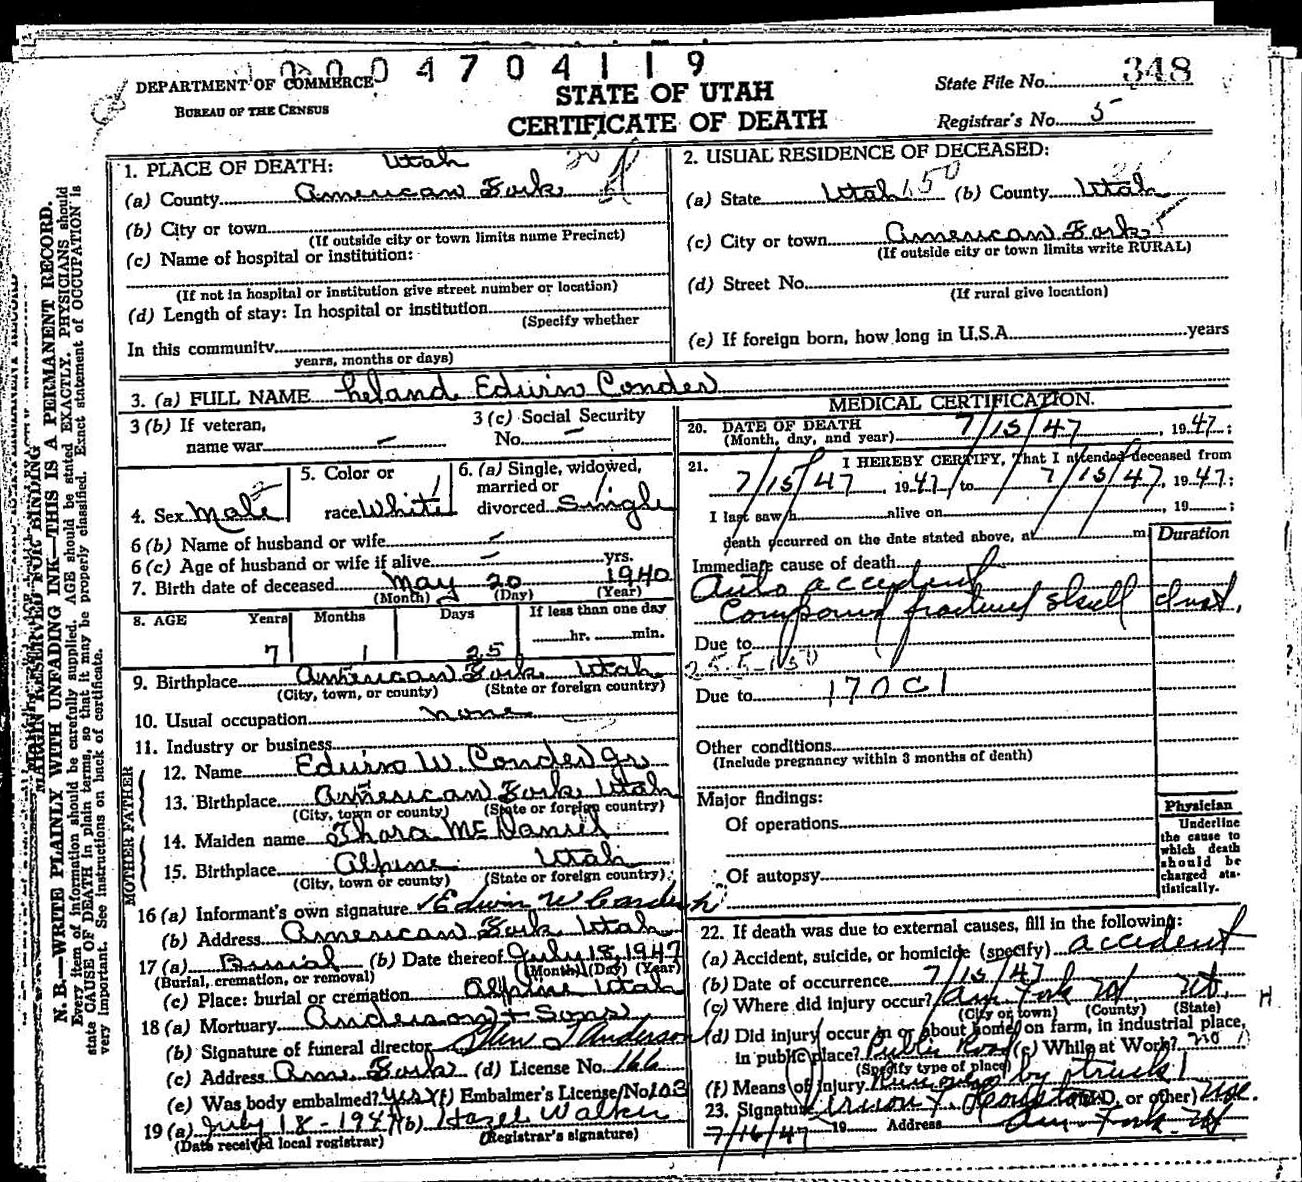 0004704119
DEPARTMENT OF COMMERCE
BUREAU OF THE CENSUS
STATE OF UTAH
CERTIFICATE OF DEATH
State File No. 348
Registrar's No. 5
1. PLACE OF DEATH: Utah
(a) County American Fork
(b) City or town
(If outside city or town limits name Precinct)
(c) Name of hospital or institution:
(If not in hospital or institution give street number or location)
(d) Length of stay: In hospital or institution
(Specify whether
In this community
years, months or days)
2. USUAL RESIDENCE OF DECEASED:
(a) State Utah 150 (b) County Utah
(c) City or town American Fork
(If outside city or town limits write RURAL)
(d) Street No.
(If rural give location)
(e) If foreign born, how long in U.S.A. years
3. (a) FULL NAME Leland Edwin Conder
3 (b) If veteran,
name war –
3 (c) Social Security
No. –
4. Sex Male
5. Color or
race White
6. (a) Single, widowed,
married or
divorced Single
6 (b) Name of husband or wife –
6 (c) Age of husband or wife if alive – yrs.
7. Birth date of deceased May 20 1940
(Month) (Day) (Year)
8. AGE Years Months Days If less than one day
7 1 25 hr. min.
9. Birthplace American Fork Utah
(City, town, or county) (State or foreign country)
10. Usual occupation none
11. Industry or business
FATHER
12. Name Edwin W. Conder Jr
13. Birthplace American Fork Utah
(City, town or county) (State or foreign country)
MOTHER
14. Maiden name Thora McDaniel
15. Birthplace Alpine Utah
(City, town or county) (State or foreign country)
16 (a) Informant's own signature Edwin W Conder Jr
(b) Address American Fork Utah
17 (a) Burial (b) Date thereof July 18, 1947
(Burial, cremation, or removal) (Month) (Day) (Year)
(c) Place: burial or cremation Alpine Utah
18 (a) Mortuary Anderson + Sons
(b) Signature of funeral director Anderson
(c) Address Am. Fork (d) License No. 166
(e) Was body embalmed? yes (f) Embalmer's License No. 103
19 (a) July 18 - 1947 (b) Hazel Walker
(Date received local registrar) (Registrar's signature)
MEDICAL CERTIFICATION.
20. DATE OF DEATH
(Month, day, and year) 7/15/47, 1947;
21. I HEREBY CERTIFY, That I attended deceased from
7/15/47, 1947 to 7/15/47, 1947;
I last saw h alive on , 19 ;
death occurred on the date stated above, at m.
Duration
Immediate cause of death
Auto accident
Compound fractured skull
Due to
255-150
Due to 170C1
Other conditions
(Include pregnancy within 3 months of death)
Major findings:
Of operations
Of autopsy
Physician
Underline
the cause to
which death
should be
charged sta-
tistically.
22. If death was due to external causes, fill in the following:
(a) Accident, suicide, or homicide (specify) accident
(b) Date of occurrence 7/15/47
(c) Where did injury occur? Am Fork Ut Ut.
(City or town) (County) (State)
H
(d) Did injury occur in or about home, on farm, in industrial place,
in public place? Public Road (e) While at Work? no
(Specify type of place)
(f) Means of injury Run over by truck
23. Signature Houston (M.D. or other)
7/16/47 19 Address Am. Fork. Ut
MARGIN RESERVED FOR BINDING
N. B.—WRITE PLAINLY WITH UNFADING INK—THIS IS A PERMANENT RECORD.
Every item of information should be carefully supplied. AGE should be stated EXACTLY. PHYSICIANS should
state CAUSE OF DEATH in plain terms, so that it may be properly classified. Exact statement of OCCUPATION is
very important. See instructions on back of certificate.